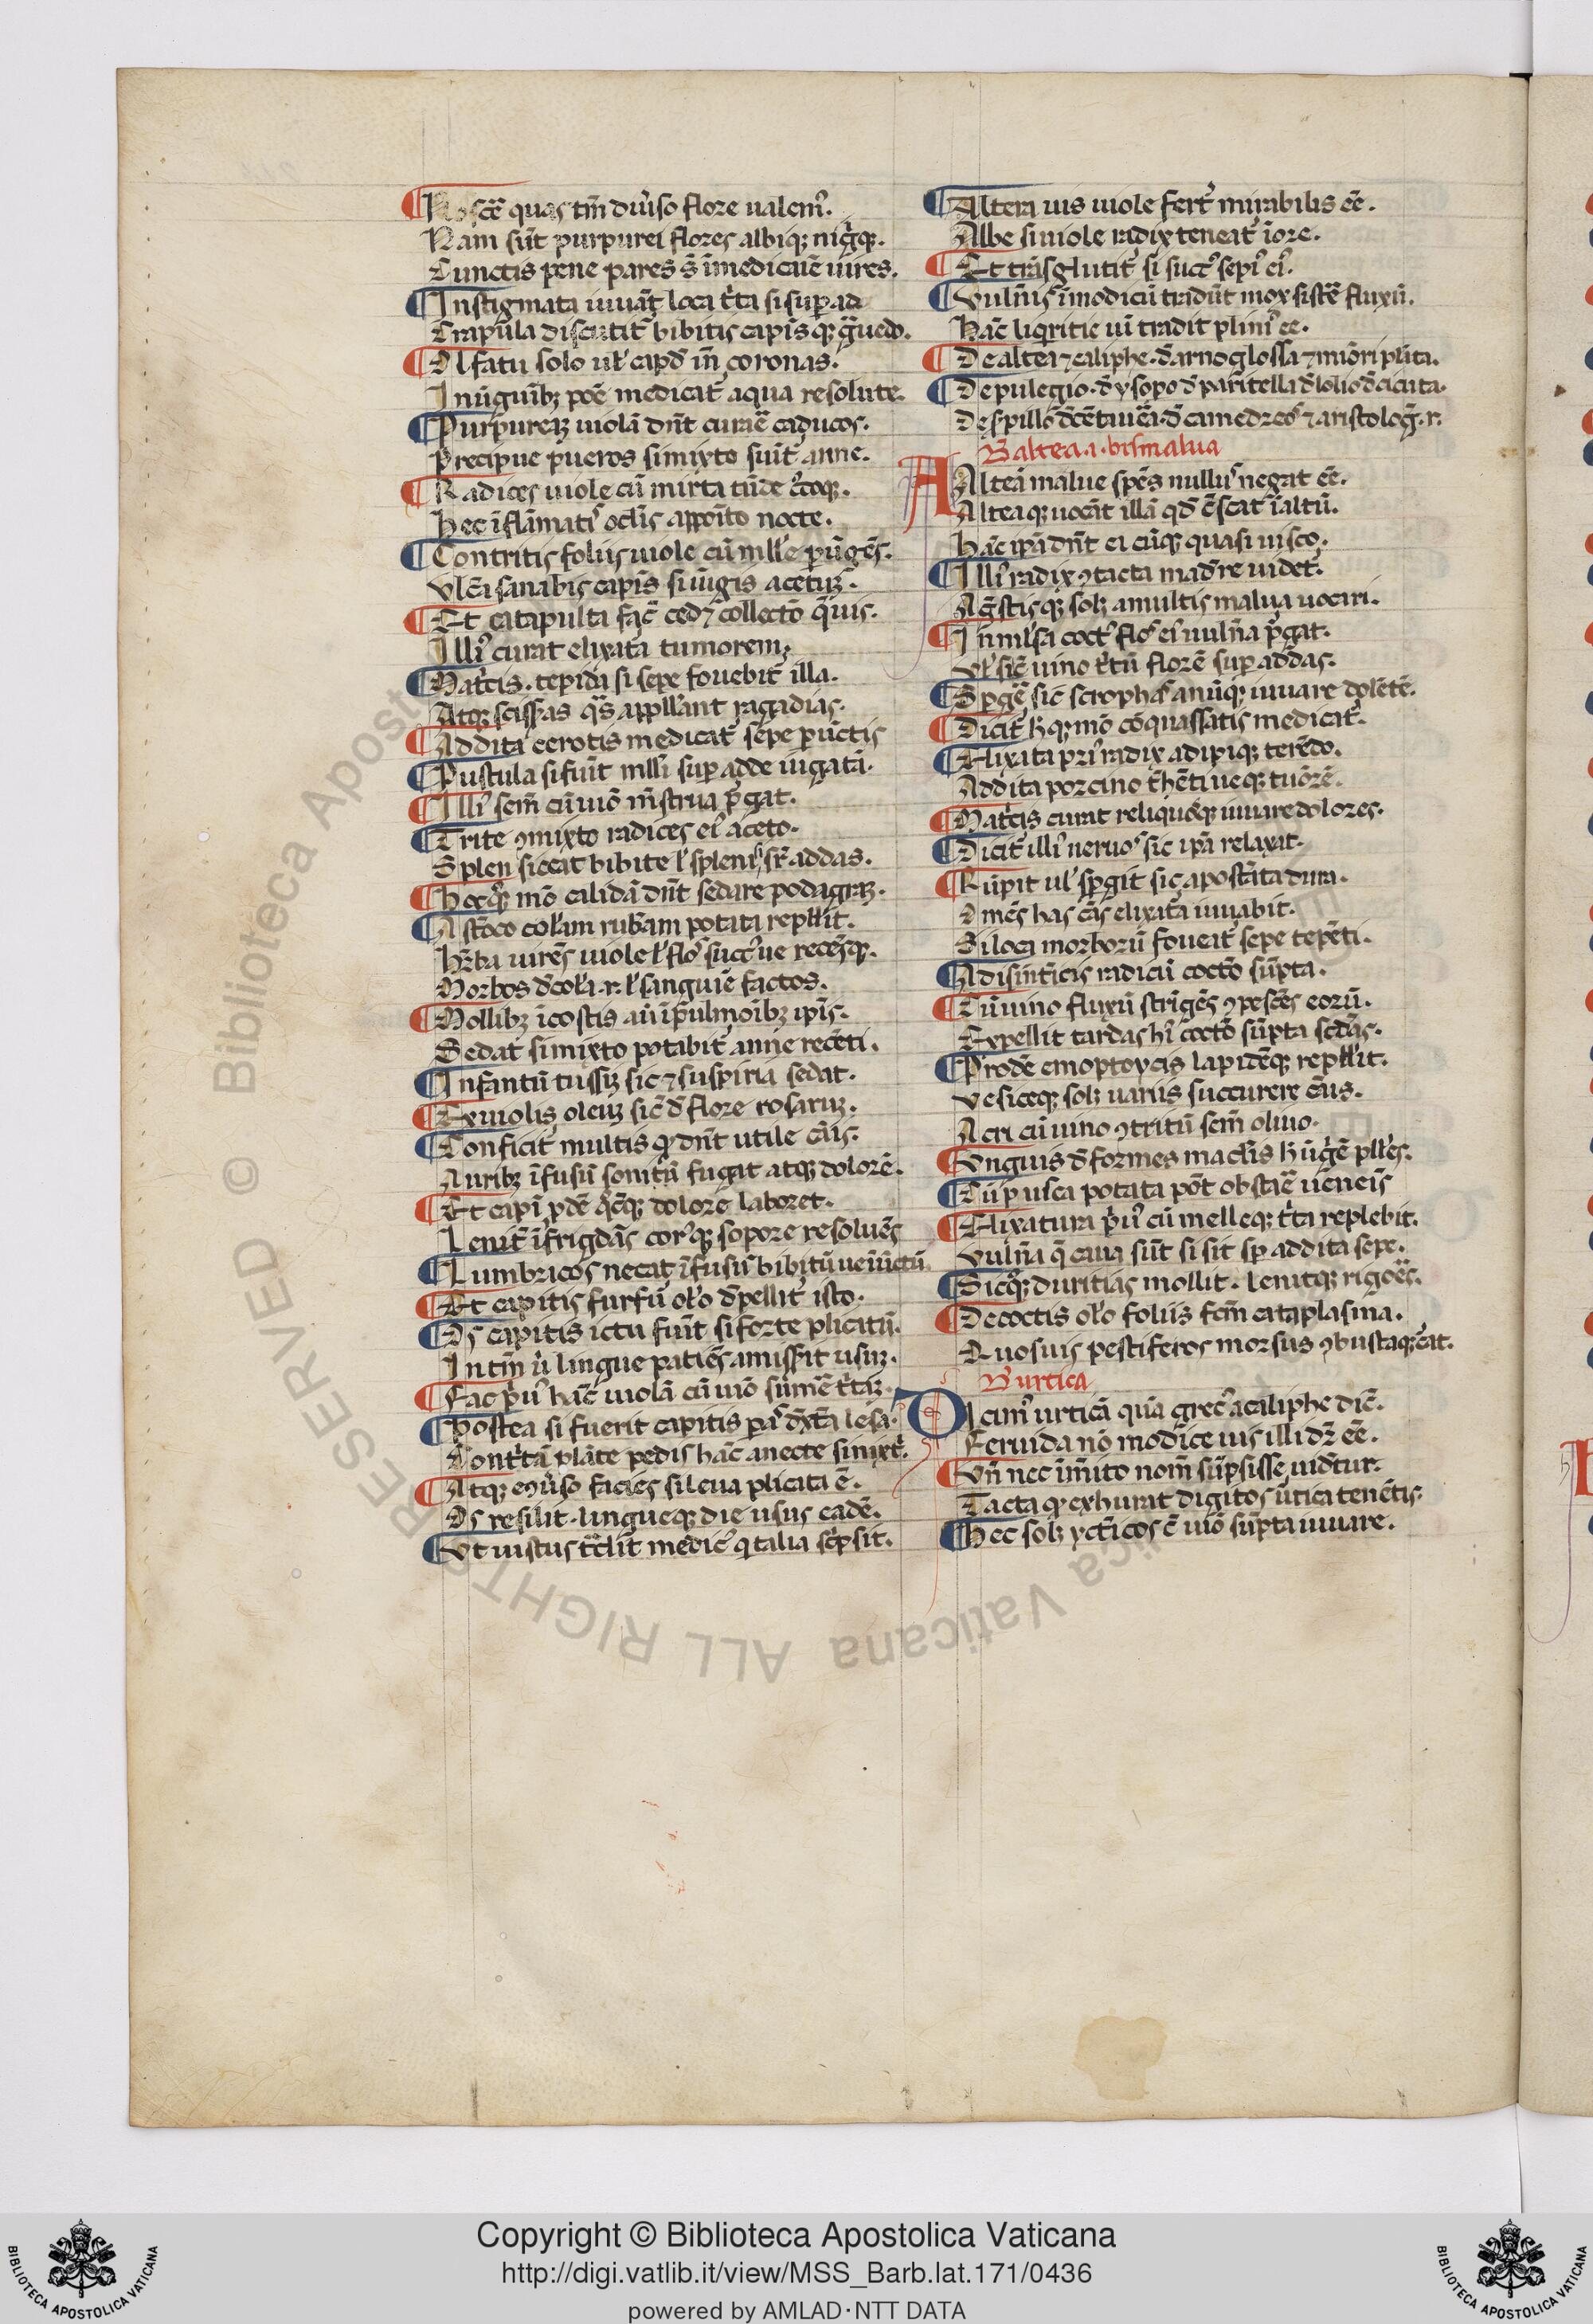 Noscē quas tm̄ diu̾so flore ualemꝰ.
Nam sūt purpurei flores albiqꝫ nigͥqꝫ.
Cunctis pene pares s̄ ī medicūe uires.
¶ In stigmata iuuāt loca tͥta si suꝑ ad
Crapula discutit̃ bibitis capīs qꝫ gͣuedo.
¶ Olfatu solo ul̓ capđ in̄ coronas.
In ūguībꝫ poē medicat̃ aqua resolute.
¶ Purpureaꝫ uiolā dn̄t curare caducos.
Precipue pueros si mixto sūit anne.
¶ Radices uiole cū mirta tūde crocoqꝫ.
Hec īflāmatꝭ oclīs appōito nocte.
¶ Contritis foliis uiole cū mll̓e ꝑūgēs.
Vlc̄a sanabis capīs si iūgis acetuꝫ.
¶ Et catapulta fac̄ ced⁊ collectō qͣuis.
Illiꝰ curat elixata tumorem.
¶ Mat̃cis. tepida si sepe fouebit̃ illa.
Atqꝫ scissas qͣs appll̓ant ragadias.
¶ Addita cerotis medicat̃ sepe ꝑūctis
¶ Pustula si fūit mll̓i suꝑ adde iugatā.
¶ Illiꝰ sem̄ cū uīo mn̄strua pͥgat.
¶ Trite ꝯmixto radices eiꝰ aceto.
Splen siccat bibite l̓ spleni sr̄ addas.
¶ Hocqꝫ mō calidā dn̄t sedare podagraꝫ.
¶ A stōco col̓am rub̄am potata repll̓it.
Hr̄ba uirēs uiole l̓ flos succꝰ ue recēsqꝫ.
Morbos đ col̓a .r. l̓ sanguīe factos.
¶ Mollibꝫ ī costis aūt ī pulmōibꝫ ipīs.
Sedat si mixto potabit̃ anne recēti.
¶ Infantū tussiꝫ sic ⁊ suspiria sedat.
¶ Ex uiolis oleuꝫ sic̄ đ flore rosaruꝫ.
¶ Conficit̃ multis qđ dn̄t utile cāis.
Auribꝫ īfusū sonitū fugat atqꝫ dolorē.
¶ Et capiti ꝓdē qͥcūqꝫ dolore laboret.
Lenit ī frigdās corꝰqꝫ sopore resoluēs
¶ Lumbricos necat īfusū bibitū ue iūctū.
¶ Et capitis furfū ol̓o đpellit̃ isto.
¶ Os capitis ictu fūit si forte plicatū.
In tm̄ ut lingue patiēs amissit usuꝫ.
¶ Fac pͥuꝰ hāc uiolā cū uīo sūmē tͥtaꝫ.
¶ Postea si fuerit capitis pars dx̄ta lesa.
Contͥtā plāte pedis hāc anecte sinixtͥ.
¶ Atqꝫ ꝯu̾so facies si leua plicata ē.
Os resilit. lingueqꝫ die usus eadē.
¶ Vt iustus tt̄lit medicꝰ qͥ talia scͥpsit.
¶ Altera uis uiole fert̃ mirabilis eē.
Albe si uiole radix teneat̃ ī ore.
¶ Et trāsglutit̃ si succꝰ sepiꝰ eiꝰ.
¶ Vulnīs īmodicū tradūt mox sistē fluxū.
Hāc liqͥritie uī tradit pliniꝰ eē.
¶ De altea ⁊ caliphe. đ arnoglossa ⁊ miōri plāta.
¶ De pulegio. đ ysopo đ paritella đ lolio đ cicuta.
De spillō đ cētaūea. đ camedreos ⁊ aristolog̃ .r.
Đ altea .i. bismalua
Alteā malue spēs nullus negat eē.
Alteaqꝫ uocāt illā qđ cͥscat ī altū.
Hāc ipā dn̄t ei cūqꝫ quasi uisco.
¶ Illiꝰ radix ꝯtacta mad̓re uidet̃.
Agͣstisqꝫ solꝫ a multis malua uocari.
¶ In mll̓sa coctꝰ flos eiꝰ uuln̄a pͥgat.
Vl̓ sic̄ uino tͥtū florē suꝑ addas.
¶ Sꝑgē sic scrophas anūqꝫ iuuare dolētē.
¶ Dicit̃ hqꝫ mō cōquassatis medicat̃.
¶ Elixata priꝰ radix adipiqꝫ terēdo.
Addita porcino thēti ueqꝫ tuōrē.
¶ Mat̃cis curat reliquosqꝫ iuuare dolores.
¶ Dicit̃ illiꝰ neruos sic ipā relaxat.
¶ Rūpit ul̓ sꝑgit sic apost̄ata dura.
Omēs has cās elixata iuuabit.
Si loca morborū foueat̃ sepe tepēti.
¶ A disint̃icis radicū coctō sūpta.
¶ Cū uino fluxū strīgēs ꝯpescēs eorū.
Expellit tardas hīc coctō sūpta scđas.
¶ Prodē emoptoycis lapidēqꝫ repll̓it.
Vesiceqꝫ solꝫ uariis succurere cāis.
Acri cū uino ꝯtritū sem̄ oliuo.
¶ Vnguis đformes maclīs h̄ ūgͥē pll̓es.
¶ Cū pusca potata pōt obstare uēneīs
¶ Elixatura pͥuꝰ cū melleqꝫ tͥta replebit.
Vuln̄a qͣ caua sūt si sit suꝑ addita sepe.
¶ Sicqꝫ duritias mollit. lenitqꝫ rigoēs.
¶ Decoctis ol̓o foliis fcm̄ cataplasma.
Quosuis pestiferos morsus ꝯbustaqꝫ cͣat.
Đ urtica
Dicimꝰ urticā quā grecꝰ acaliphē dic̄.
Feruida nō modice uis illi dꝛ eē.
¶ Vn̄ nec īmito nom̄ sūpsisse uidetur.
Tacta qđ exhurat digitos urtica tenētis.
¶ Hec solꝫ yctͥcos c̄ uīo sūpta iuuare.
Copyright © Biblioteca Apostolica Vaticana
http://digi.vatlib.it/view/MSS_Barb.lat.171/0436
powered by AMLAD·NTT DATA
© Biblioteca Apostolica Vaticana ALL RIGHTS RESERVED
BIBLIOTECA APOSTOLICA VATICANA
BIBLIOTECA APOSTOLICA VATICANA